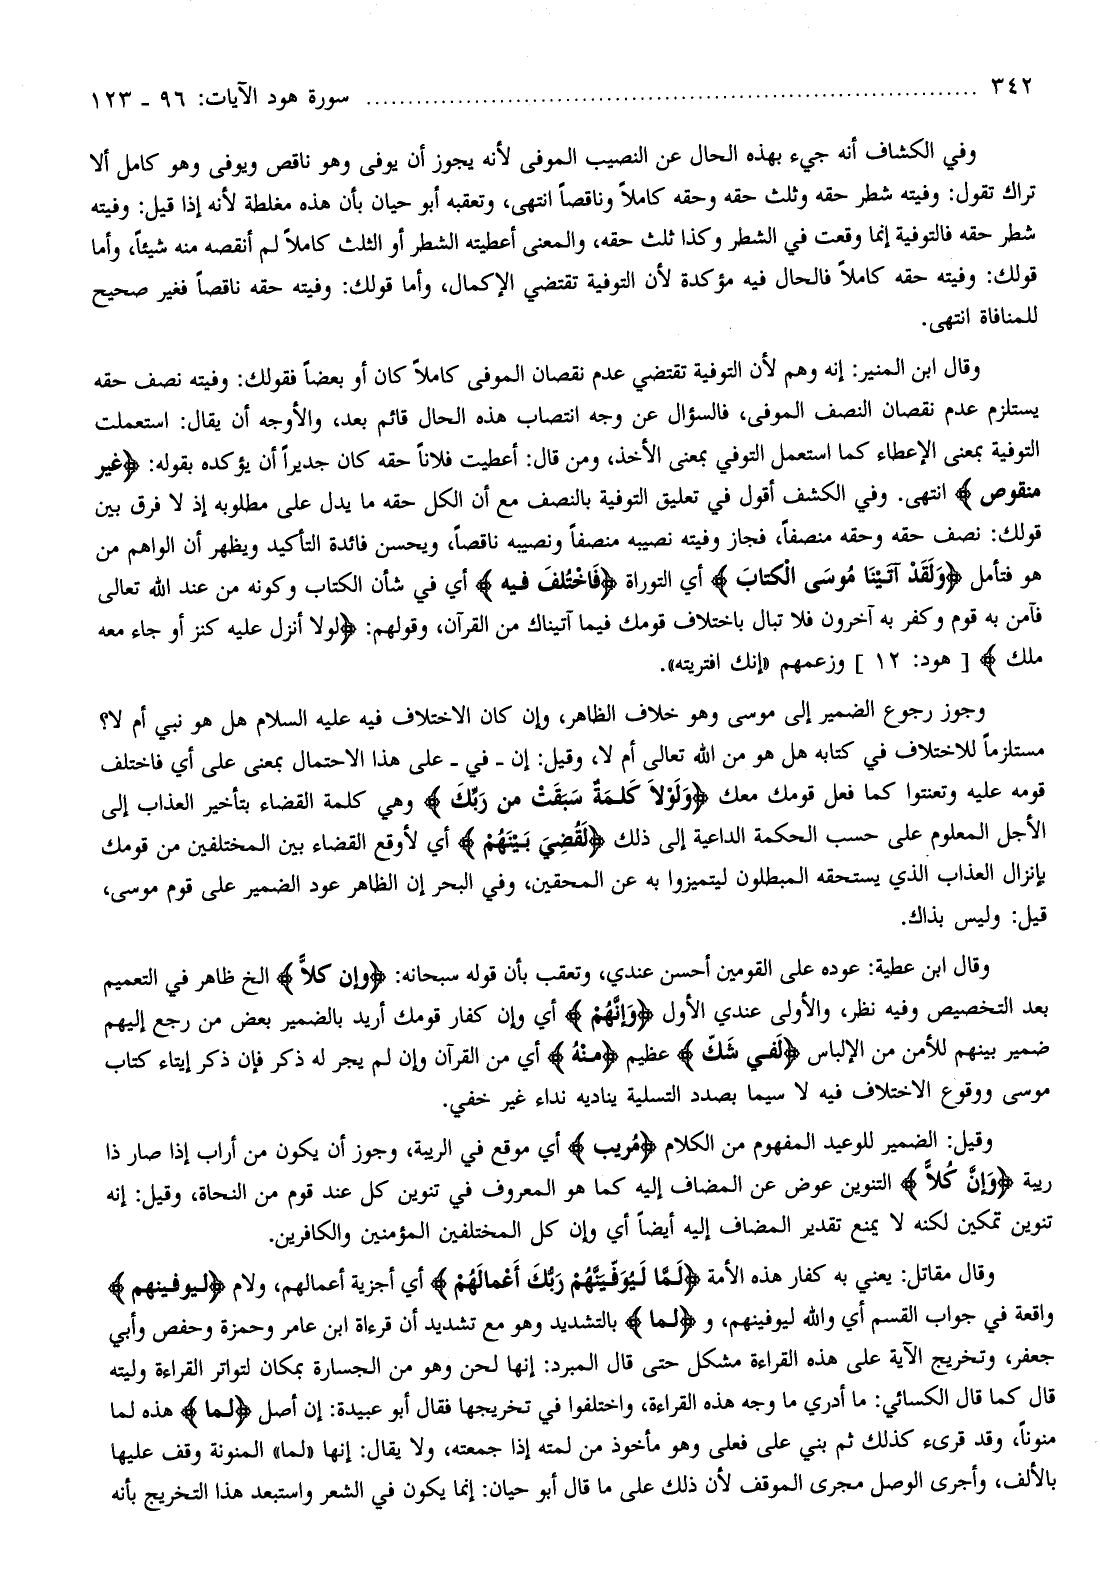 ٣٤٢ ........................................ سورة هود الآيات: ٩٦ - ١٢٣
وفي الكشاف أنه جيء بهذه الحال عن النصيب الموفى لأنه يجوز أن يوفى وهو ناقص ويوفى وهو كامل ألا
تراك تقول: وفيته شطر حقه وثلث حقه وحقه كاملاً وناقصاً انتهى، وتعقبه أبو حيان بأن هذه مغلطة لأنه إذا قيل: وفيته
شطر حقه فالتوفية إنما وقعت في الشطر وكذا ثلث حقه، والمعنى أعطيته الشطر أو الثلث كاملاً لم أنقصه منه شيئاً، وأما
قولك: وفيته حقه كاملاً فالحال فيه مؤكدة لأن التوفية تقتضي الإكمال، وأما قولك: وفيته حقه ناقصاً فغير صحيح
للمنافاة انتهى.
وقال ابن المنير: إنه وهم لأن التوفية تقتضي عدم نقصان الموفى كاملاً كان أو بعضاً فقولك: وفيته نصف حقه
يستلزم عدم نقصان النصف الموفى، فالسؤال عن وجه انتصاب هذه الحال قائم بعد، والأوجه أن يقال: استعملت
التوفية بمعنى الإعطاء كما استعمل التوفي بمعنى الأخذ، ومن قال: أعطيت فلاناً حقه كان جديراً أن يؤكده بقوله: ﴿غير
منقوص﴾ انتهى. وفي الكشف أقول في تعليق التوفية بالنصف مع أن الكل حقه ما يدل على مطلوبه إذ لا فرق بين
قولك: نصف حقه وحقه منصفاً، فجاز وفيته نصيبه منصفاً ونصيبه ناقصاً، ويحسن فائدة التأكيد ويظهر أن الواهم من
هو فتأمل ﴿وَلَقَدْ آتَيْنَا مُوسَى الْكتابَ﴾ أي التوراة ﴿فَاخْتُلفَ فيه﴾ أي في شأن الكتاب وكونه من عند الله تعالى
فآمن به قوم وكفر به آخرون فلا تبال باختلاف قومك فيما آتيناك من القرآن، وقولهم: ﴿لولا أنزل عليه كنز أو جاء معه
ملك﴾ [ هود: ١٢ ] وزعمهم «إنك افتريته».
وجوز رجوع الضمير إلى موسى وهو خلاف الظاهر، وإن كان الاختلاف فيه عليه السلام هل هو نبي أم لا؟
مستلزماً للاختلاف في كتابه هل هو من الله تعالى أم لا، وقيل: إن - في - على هذا الاحتمال بمعنى على أي فاختلف
قومه عليه وتعنتوا كما فعل قومك معك ﴿وَلَوْلاَ كَلمَةٌ سَبَقَتْ من رَبِّكَ﴾ وهي كلمة القضاء بتأخير العذاب إلى
الأجل المعلوم على حسب الحكمة الداعية إلى ذلك ﴿لَقُضِيَ بَيْنَهُمْ﴾ أي لأوقع القضاء بين المختلفين من قومك
بإنزال العذاب الذي يستحقه المبطلون ليتميزوا به عن المحقين، وفي البحر إن الظاهر عود الضمير على قوم موسى،
قيل: وليس بذاك.
وقال ابن عطية: عوده على القومين أحسن عندي، وتعقب بأن قوله سبحانه: ﴿وإن كلاًّ﴾ الخ ظاهر في التعميم
بعد التخصيص وفيه نظر، والأولى عندي الأول ﴿وَإِنَّهُمْ﴾ أي وإن كفار قومك أريد بالضمير بعض من رجع إليهم
ضمير بينهم للأمن من الإلباس ﴿لَفي شَكّ﴾ عظيم ﴿منْهُ﴾ أي من القرآن وإن لم يجر له ذكر فإن ذكر إيتاء كتاب
موسى ووقوع الاختلاف فيه لا سيما بصدد التسلية يناديه نداء غير خفي.
وقيل: الضمير للوعيد المفهوم من الكلام ﴿مُريب﴾ أي موقع في الريبة، وجوز أن يكون من أراب إذا صار ذا
ريبة ﴿وَإنَّ كُلاًّ﴾ التنوين عوض عن المضاف إليه كما هو المعروف في تنوين كل عند قوم من النحاة، وقيل: إنه
تنوين تمكين لكنه لا يمنع تقدير المضاف إليه أيضاً أي وإن كل المختلفين المؤمنين والكافرين.
وقال مقاتل: يعني به كفار هذه الأمة ﴿لَمَّا لَيُوَفِّيَنَّهُمْ رَبُّكَ أَعْمالَهُمْ﴾ أي أجزية أعمالهم، ولام ﴿ليوفينهم﴾
واقعة في جواب القسم أي والله ليوفينهم، و ﴿لما﴾ بالتشديد وهو مع تشديد أن قرءاة ابن عامر وحمزة وحفص وأبي
جعفر، وتخريج الآية على هذه القراءة مشكل حتى قال المبرد: إنها لحن وهو من الجسارة بمكان لتواتر القراءة وليته
قال كما قال الكسائي: ما أدري ما وجه هذه القراءة، واختلفوا في تخريجها فقال أبو عبيدة: إن أصل ﴿لما﴾ هذه لما
منوناً، وقد قرىء كذلك ثم بني على فعلى وهو مأخوذ من لمته إذا جمعته، ولا يقال: إنها «لما» المنونة وقف عليها
بالألف، وأجرى الوصل مجرى الموقف لأن ذلك على ما قال أبو حيان: إنما يكون في الشعر واستبعد هذا التخريج بأنه